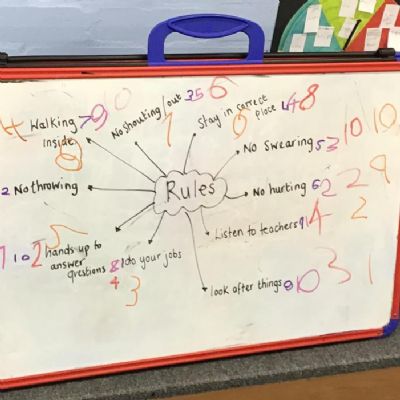 4 Walking 7 9 10
inside
8
No shouting/out 3 5 6
7
Stay in correct
place 4 4 8
6
No swearing 5 3 10 10
2 No throwing
Rules
No hurting 6 2 2 9
2
Listen to teachers 9 4
1 10 2 hands up to
answer
questions 8
5
4
1 do your jobs
3
look after things 8 10 3 1